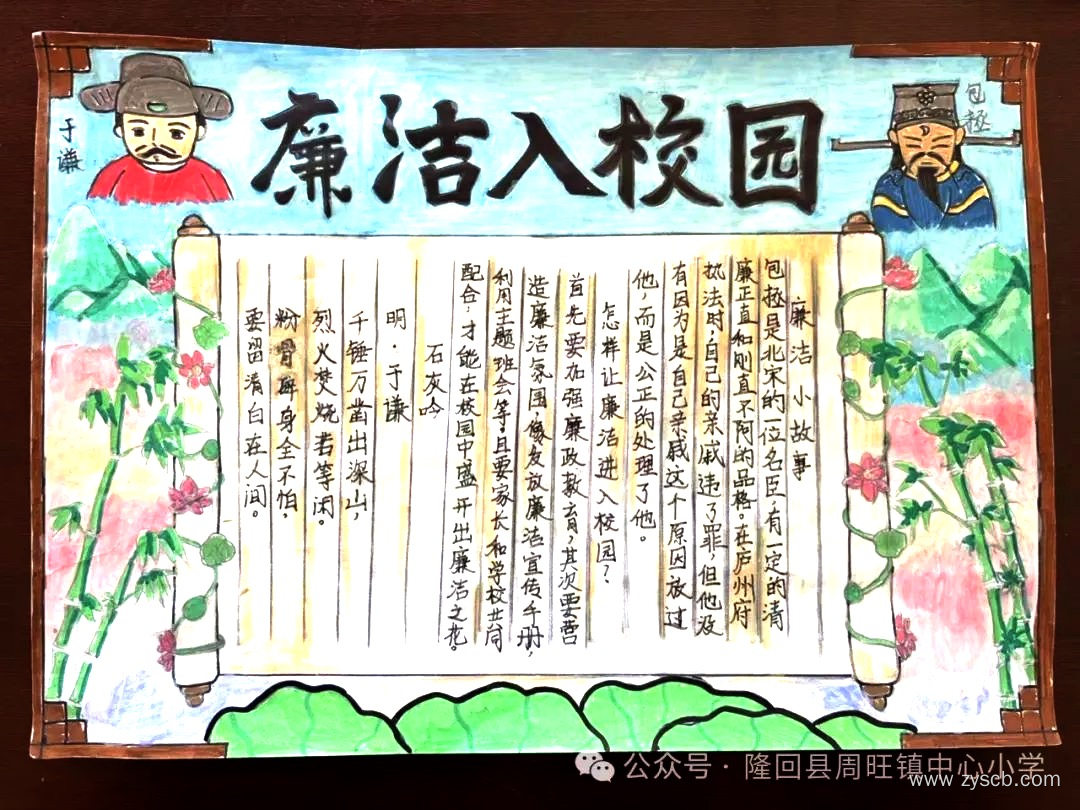 廉洁入校园
于谦
包拯
廉洁小故事
包拯是北宋的一位名臣,有一定的清
廉正直和刚直不阿的品格。在庐州府
执法时,自己的亲戚违了罪,但他没
有因为是自己亲戚这个原因放过
他,而是公正的处理了他。
怎样让廉洁进入校园?
首先要加强廉政教育,其次要营
造廉洁氛围,像发放廉洁宣传手册,
利用主题班会等且要家长和学校共同
配合,才能在校园中盛开出廉洁之花。
石灰吟
明·于谦
千锤万凿出深山,
烈火焚烧若等闲。
粉骨碎身全不怕,
要留清白在人间。
公众号·隆回县周旺镇中心小学
www.zyscb.com